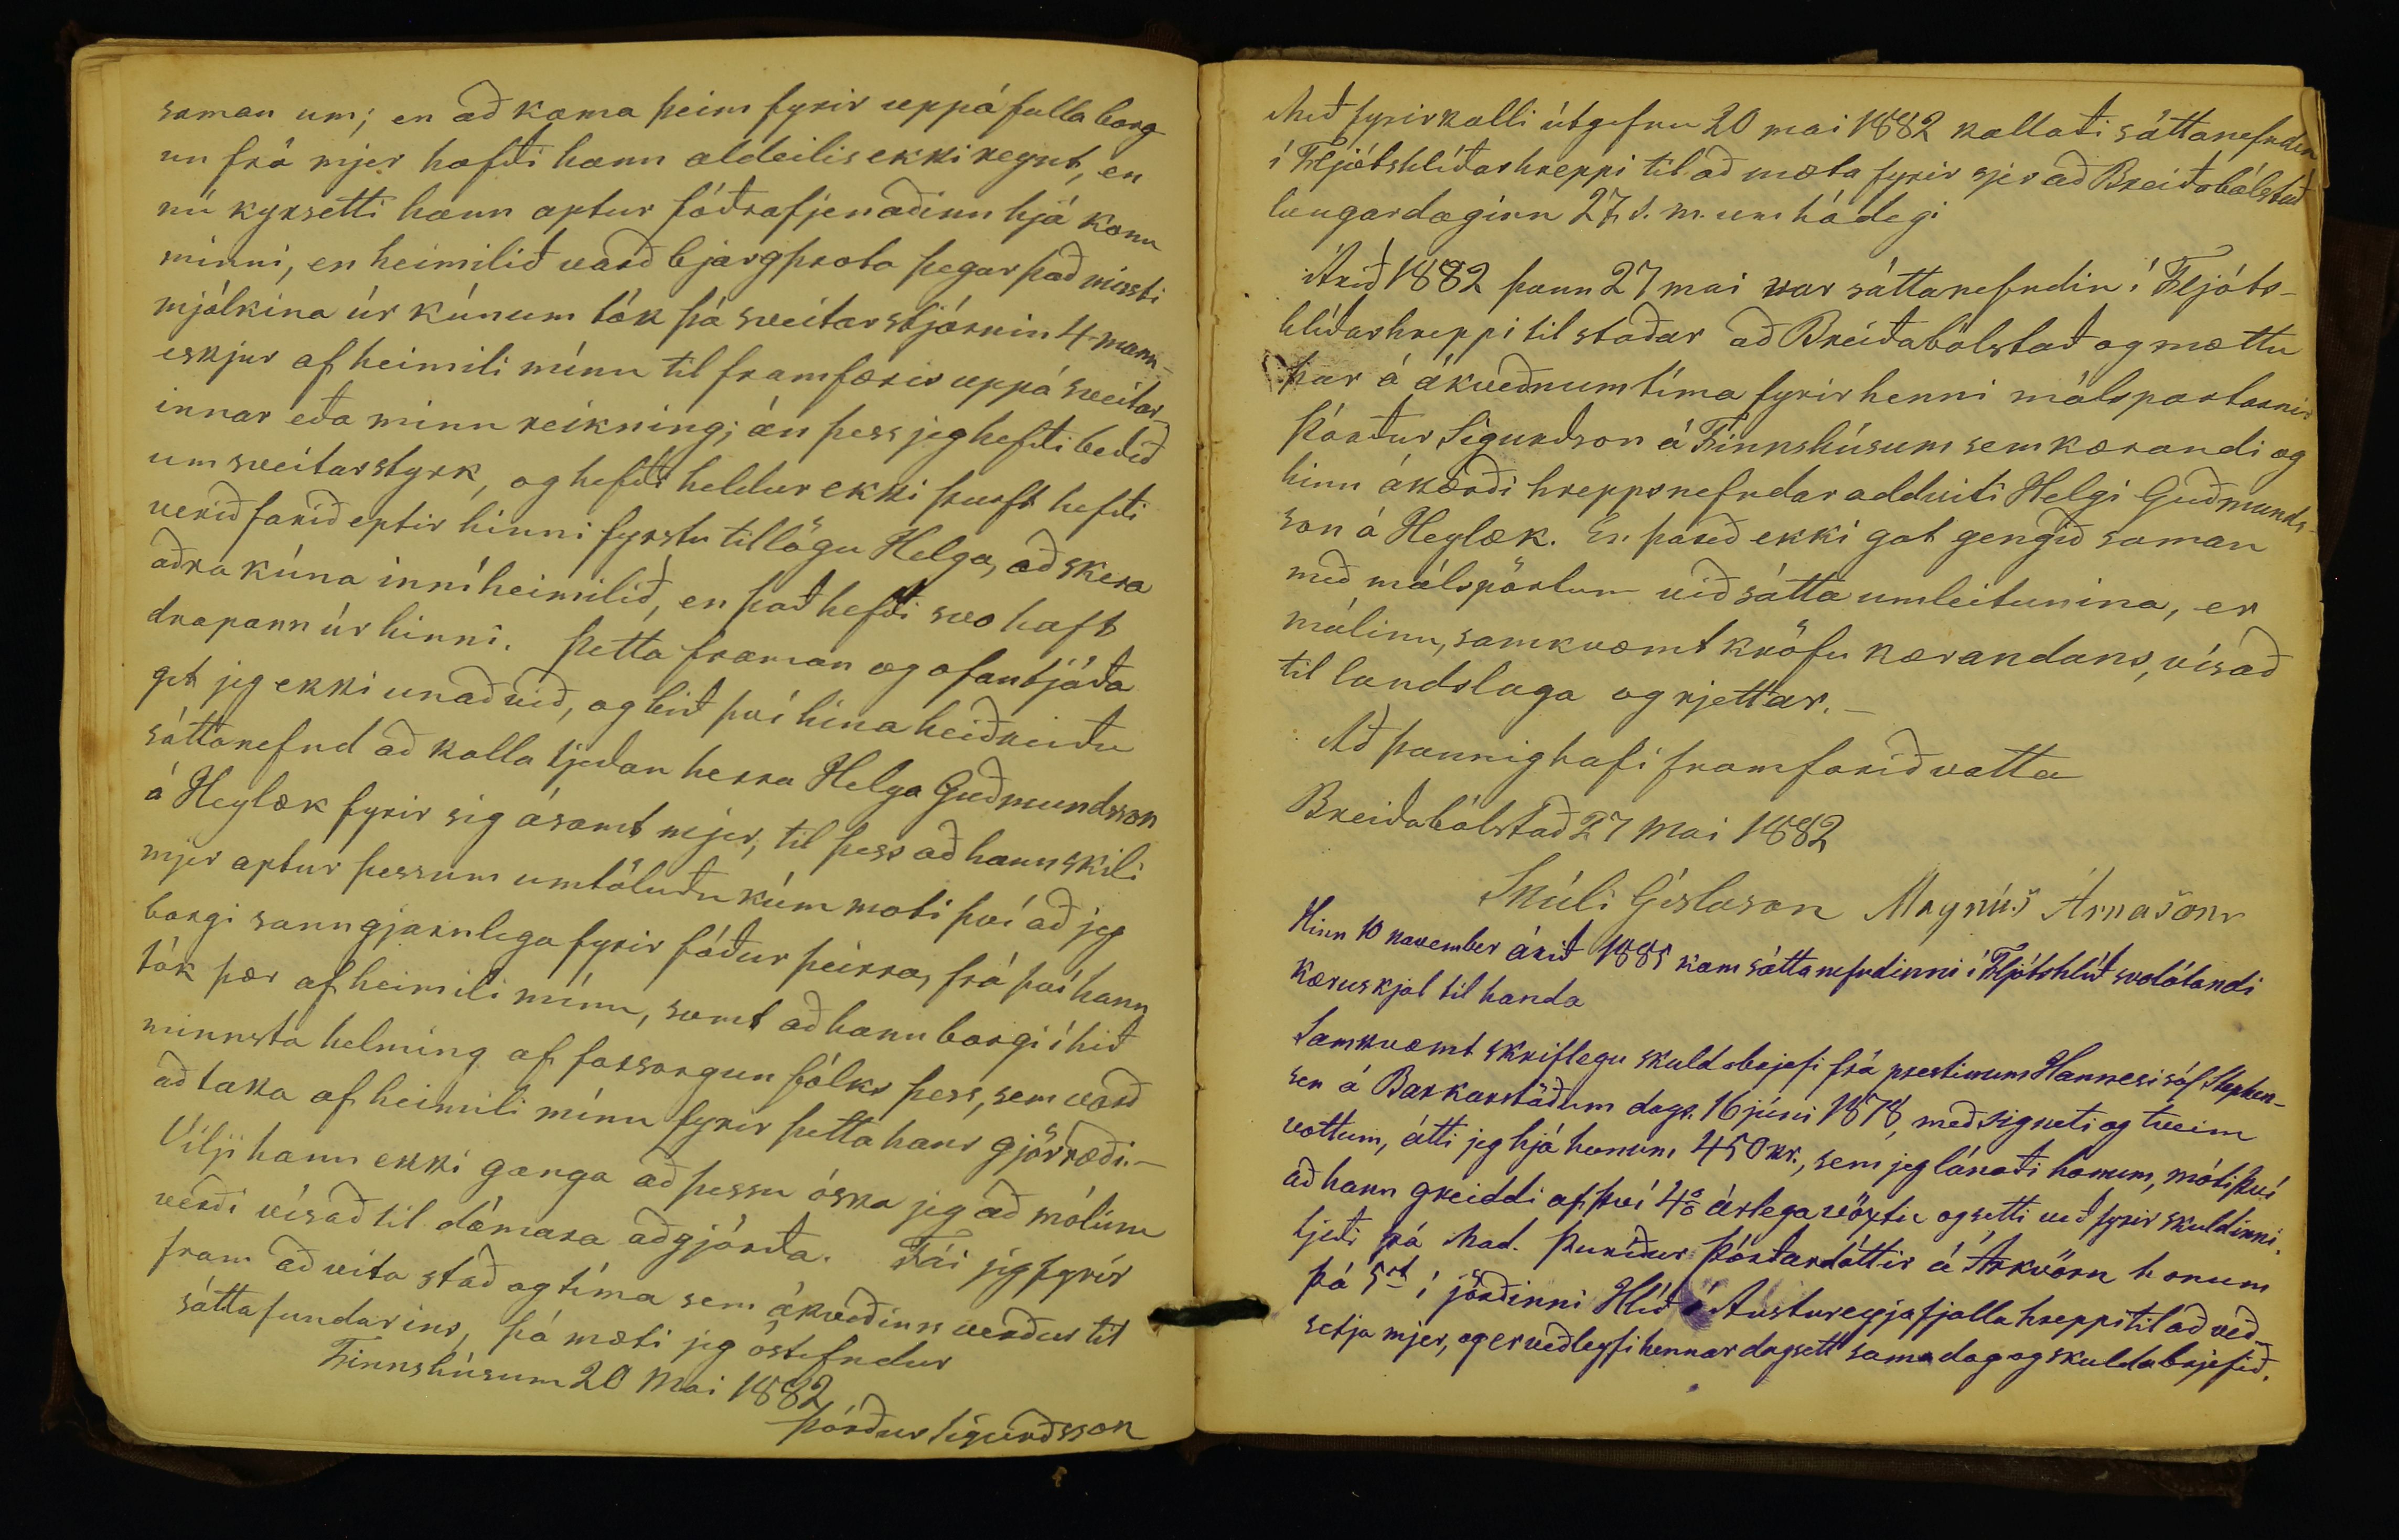 saman um; en að koma þeim fyrir uppá fulla borg
un frá mjer hafði hann aldeilis ekki reynt, en
nú kyrsetti hann aptur fóðrafjenaðinn hjá konu
minni, en heimilið varð bjargþrota þegar það missti
mjólkina úr kúnum tók þá sveitarstjórnin 4 mann-
eskjur af heimili mínu til framfæris uppá sveitar
innar eða minn reikning; án þess jeg hefði beðið
um sveitarstyrk, og hefði heldur ekki þurft hefði
verið farið eptir hinni fyrstu tillögu Helga, að skera
aðra kúna inní heimilið, en það hefði svo haft
dropann úr hinni. Þetta framan og ofantjáða
get jeg ekki unað við, og bið því hina heiðruðu
sáttanefnd að kalla tjeðan herra Helga Guðmundsson
á Heylæk fyrir sig ásamt mjer, til þess að hann skili
mjer aptur þessum umtöluðu kúm moti því að jeg
borgi sanngjarnlega fyrir fóður þeirra, frá því hann
tók þær af heimili mínu, samt að hann borgi í hið
minnsta helming af forsorgun fólks þess, sem varð
að taka af heimili mínu fyrir þetta hans gjörræði.—
Vilji hann ekki ganga að þessu óska jeg að málinu
verði vísað til dómara aðgjörða. Fái jeg fyrir
fram að vita stað og tíma sem ákveðinn verður til
sáttafundarins, þá mæti jeg óstefndur
Finnshúsum 20 Mai 1882
Þórður Sigurðsson
Með fyrirkalli útgefnu 20 mai 1882 kallaði sáttanefndin
í Fljótshlíðarhreppi til að mæta fyrir sjer að Breiðabólstað
laugardaginn 27 s. m. um hádegi
Árið 1882 þann 27 mai var sáttanefndin í Fljóts-
hlíðarhreppi til staðar að Breiðabólstað og mættu
þar á ákveðnum tíma fyrir henni málspartarnir
Þórður Sigurdson á Finnshúsum sem kærandi og
hinn ákærði hreppsnefndaroddviti Helgi Guðmunds-
son á Heylæk. En það ekki gat gengið saman
með málspörtum við sáttaumleitunina, er
málinu, samkvæmt kröfu kærandans, vísað
til landslaga og rjettar.—
Að þannig hafi framfarið votta
Breiðabólstað 27 Mai 1882
Skúli Gíslason Magnús Árnason
Hinn 10 november árið 1885 kom sáttanefndinni í Fljótshlíð svolátandi
kæruskjal til handa
Samkvæmt skriflegu skuldabrjefi frá prestinum Hannesi sál. Stephen-
sen á Barkarstöðum dags. 16 júni 1878, með signeti og tveim
vottum, átti jeg hjá honum 450 kr., sem jeg lánaði honum, móti því
að hann greiddi af því 4% árlega vöxtu og setti veð fyrir skuldinni.
Ljeði þá Mad. Þuríður Þórðardóttir á Árkvörn honum
þá 5rt í jörðinni Hlíð í Austureyjafjallahreppi til að veð-
setja mjer, og er veðleyfi hennar dagsett sama dag og skuldabrjefið.